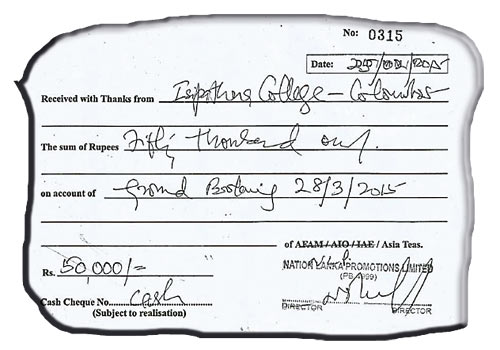 No: 0315
Date: /2015
Received with Thanks from Isipathana College - Colombo
The sum of Rupees Fifty thousand only.
on account of Ground Booking 28/3/2015
of AFAM / AIO / IAE / Asia Teas.
Rs. 50,000/=
NATION LANKA PROMOTIONS LIMITED
Cash Cheque No. cash
(Subject to realisation)
DIRECTOR DIRECTOR